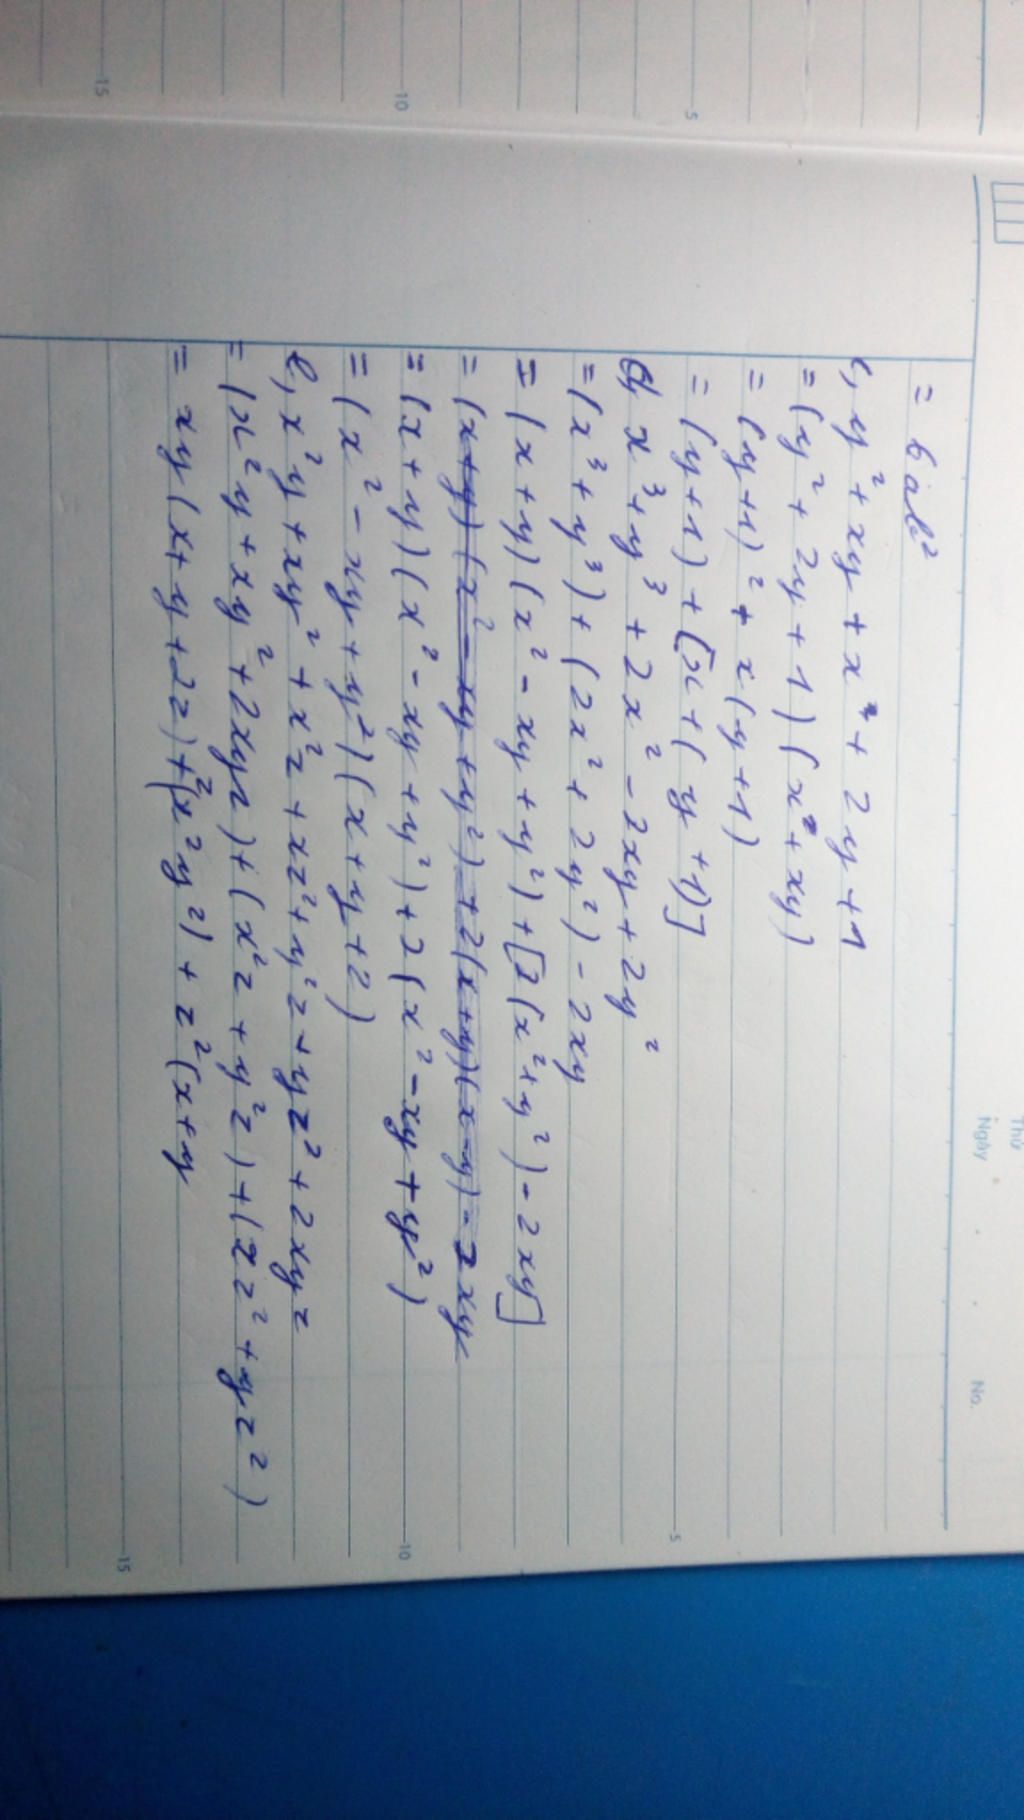 Thứ
Ngày
No.
= 6ab²
c, y² + xy + x + 2y + 1
= (y² + 2y + 1) (x + xy)
= (y+1)² + x(y+1)
= (y+1) + [x + (y+1)]
d, x³ + y³ + 2x² - 2xy + 2y²
= (x³ + y³) + (2x² + 2y²) - 2xy
= (x+y)(x² - xy + y²) + [2(x² + y²) - 2xy]
= (x+y)(x² - xy + y²) + 2(x+y)(x-y) - 2xy
= (x+y)(x² - xy + y²) + 2(x² - xy + y²)
= (x² - xy + y²)(x+y+2)
e, x²y + xy² + x²z + xz² + y²z + yz² + 2xyz
= (x²y + xy² + 2xyz) + (x²z + y²z) + (xz² + yz²)
= xy(x+y+2z) + (x²y²) + z²(x+y
5
10
15
5
10
15